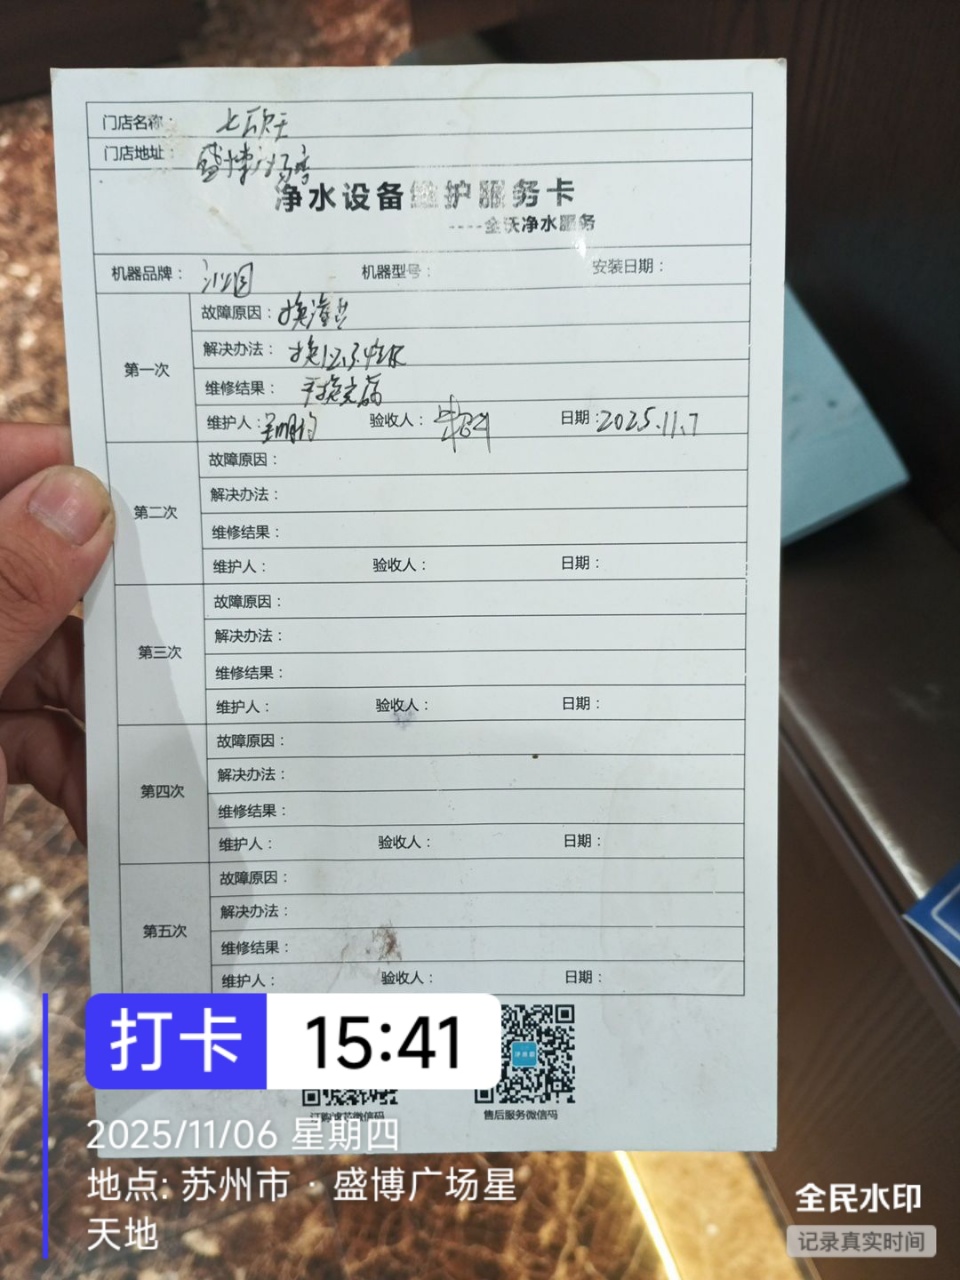 门店名称： 七欣天
门店地址：
净水设备维护服务卡
----全沃净水服务
机器品牌： 沁园 机器型号： 安装日期：
第一次
故障原因：换滤芯
解决办法：换1.2.3.4级
维修结果：
维护人： 验收人： 日期：2025.11.7
第二次
故障原因：
解决办法：
维修结果：
维护人： 验收人： 日期：
第三次
故障原因：
解决办法：
维修结果：
维护人： 验收人： 日期：
第四次
故障原因：
解决办法：
维修结果：
维护人： 验收人： 日期：
第五次
故障原因：
解决办法：
维修结果：
维护人： 验收人： 日期：
订购滤芯微信码 售后服务微信码
打卡 15:41
2025/11/06 星期四
地点: 苏州市 · 盛博广场星
天地
全民水印
记录真实时间